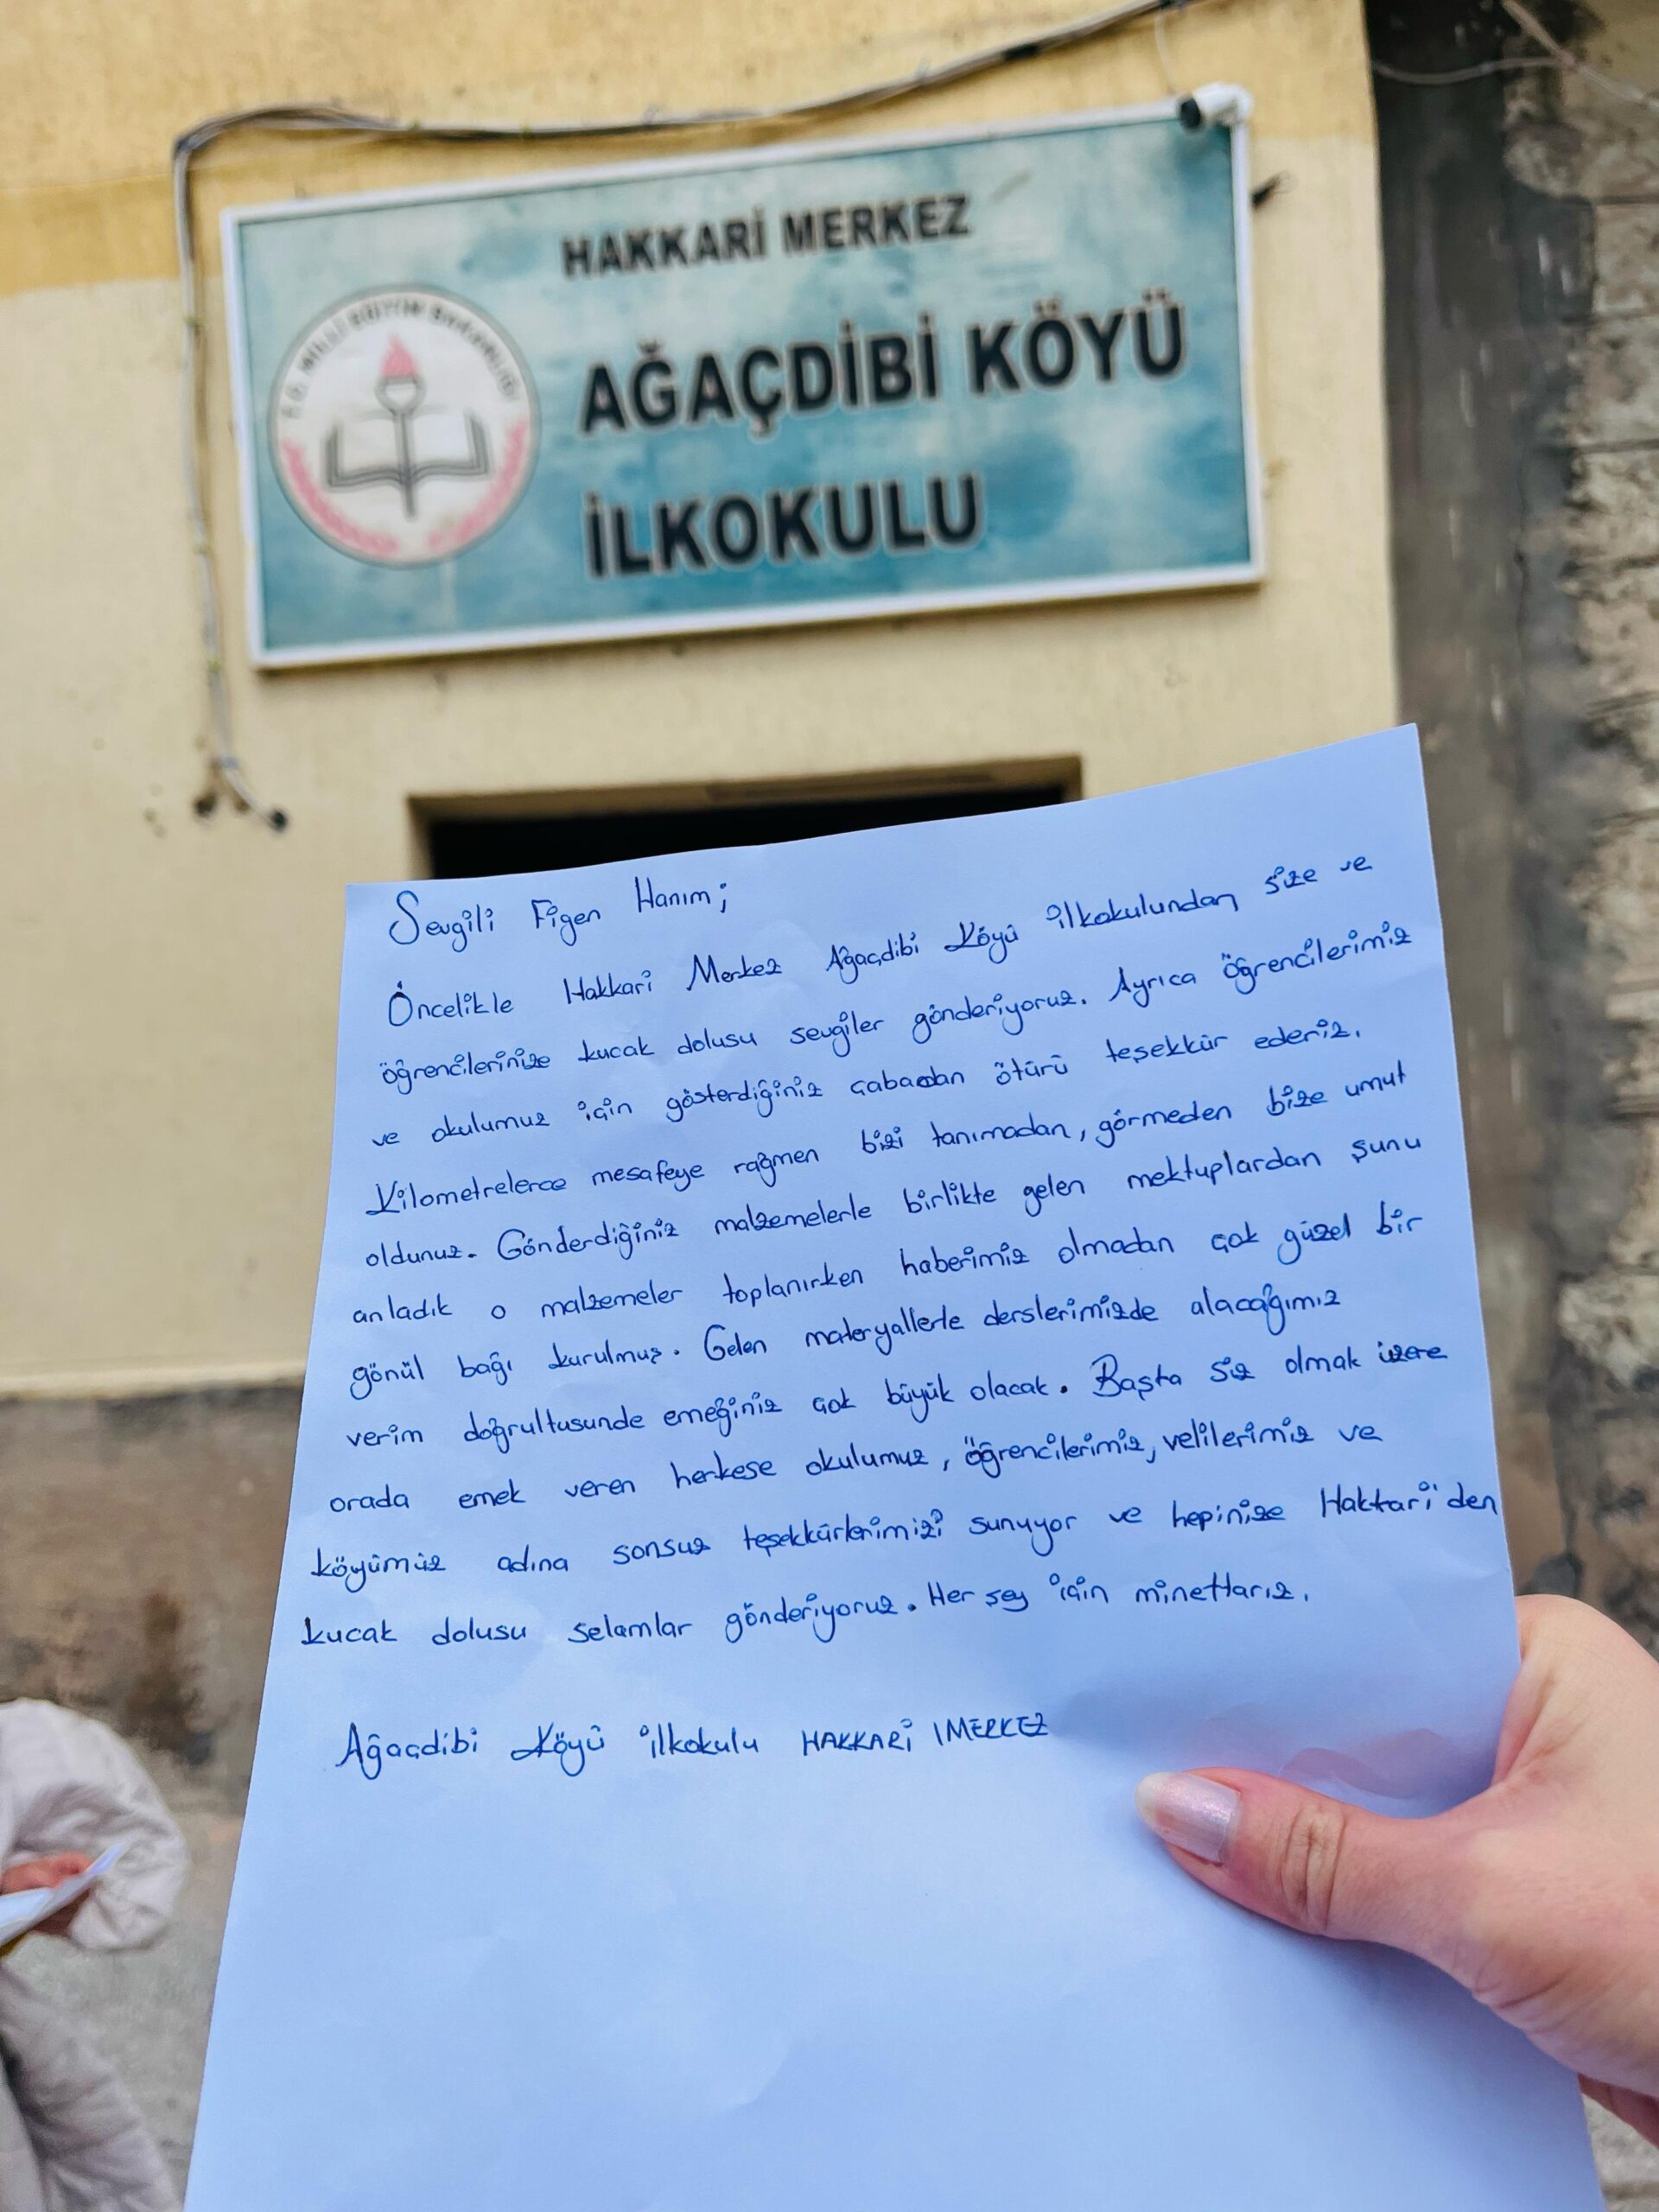 HAKKARİ MERKEZ
AĞAÇDİBİ KÖYÜ
İLKOKULU
T.C. MİLLİ EĞİTİM BAKANLIĞI
Sevgili Figen Hanım;
Öncelikle Hakkari Merkez Ağaçdibi Köyü ilkokulundan size ve
öğrencilerinize kucak dolusu sevgiler gönderiyoruz. Ayrıca öğrencilerimiz
ve okulumuz için gösterdiğiniz çabadan ötürü teşekkür ederiz.
Kilometrelerce mesafeye rağmen bizi tanımadan, görmeden bize umut
oldunuz. Gönderdiğiniz malzemelerle birlikte gelen mektuplardan şunu
anladık o malzemeler toplanırken haberimiz olmadan çok güzel bir
gönül bağı kurulmuş. Gelen materyallerle derslerimizde alacağımız
verim doğrultusunde emeğiniz çok büyük olacak. Başta siz olmak üzere
orada emek veren herkese okulumuz, öğrencilerimiz, velilerimiz ve
köyümüz adına sonsuz teşekkürlerimizi sunuyor ve hepinize Hakkari'den
kucak dolusu selamlar gönderiyoruz. Her şey için minettarız.
Ağaçdibi Köyü ilkokulu HAKKARİ / MERKEZ